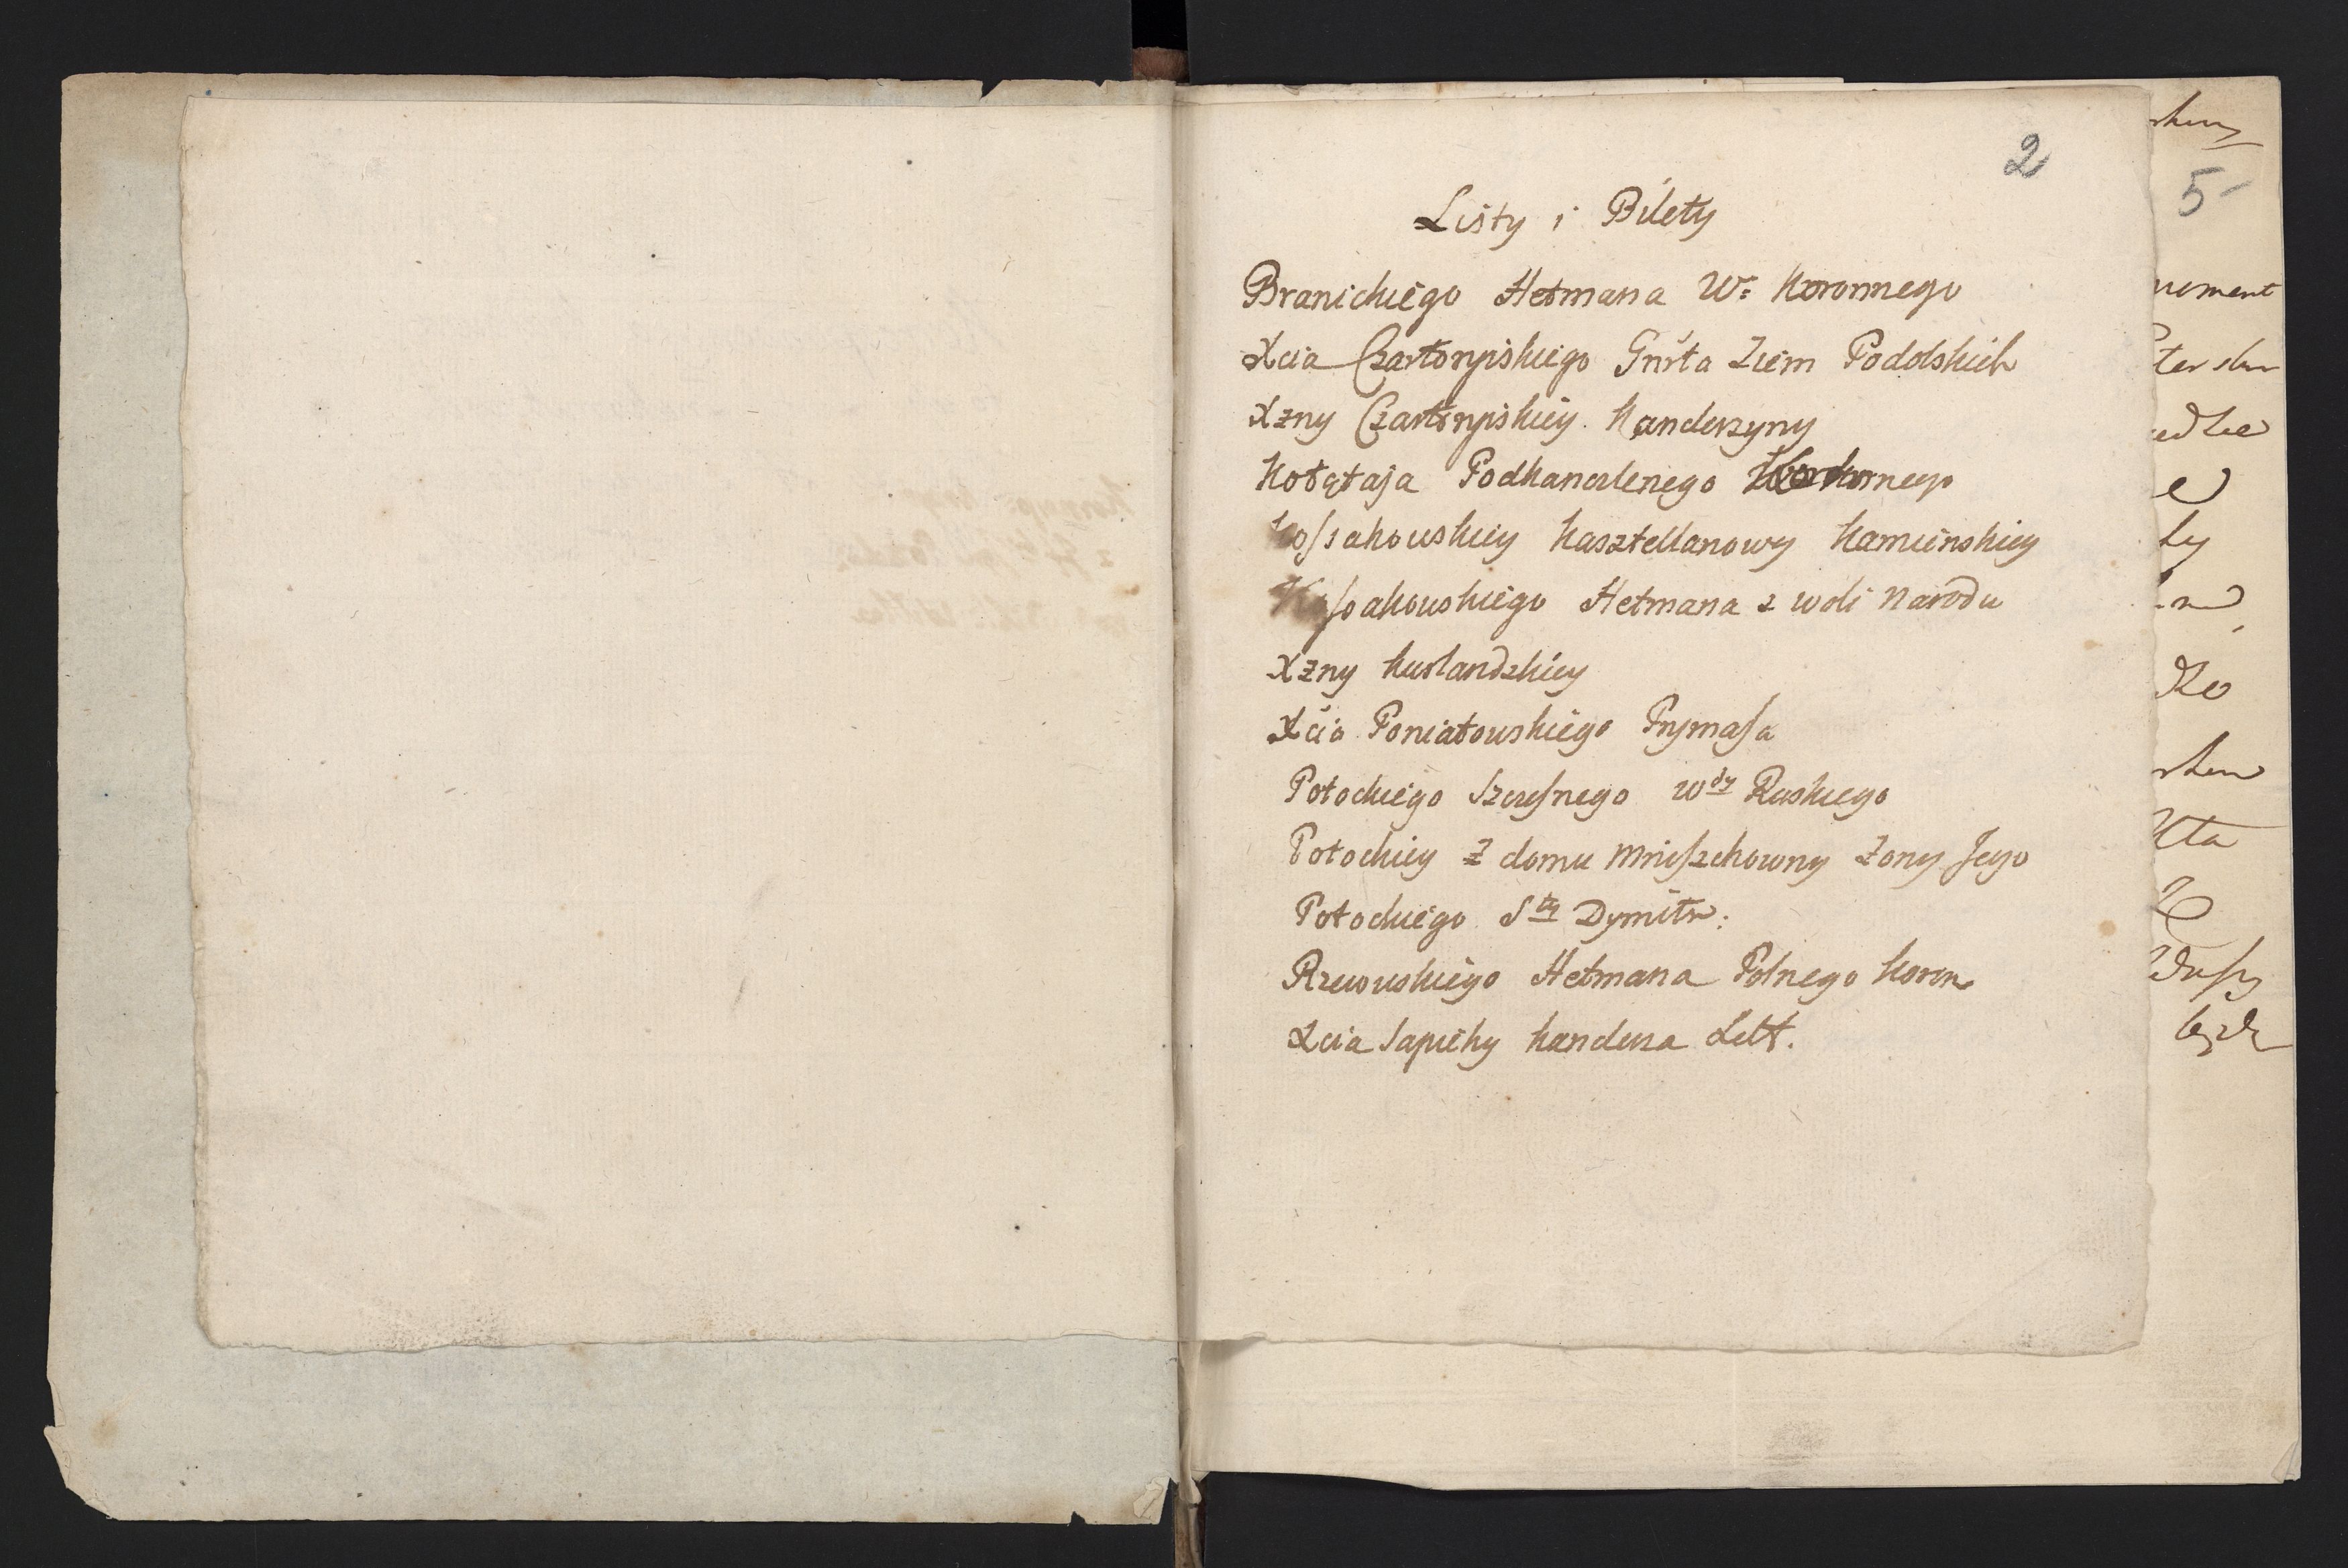 2
Listy i Bilety
Branickiego Hetmana W: Koronnego
Xcia Czartoryiskiego Gnrła Ziem Podolskich
Xzny Czartoryiskiey Kanclerzyny
Kołątaja Podkanclerzego Koronnego
Kossakowskiey Kasztellanowy Kamieńskiey
Kossakowskiego Hetmana z woli narodu
Xzny Kurlandzkiey
Xcia Poniatowskiego Prymasa
Potockiego Szczesnego Wdy Ruskiego
Potockiey z domu Mniszchowny Zony Jego
Potockiego Sty Dymitr:
Rzewuskiego Hetmana Polnego Koron
Xcia Sapiehy Kanclerza Litt.
5